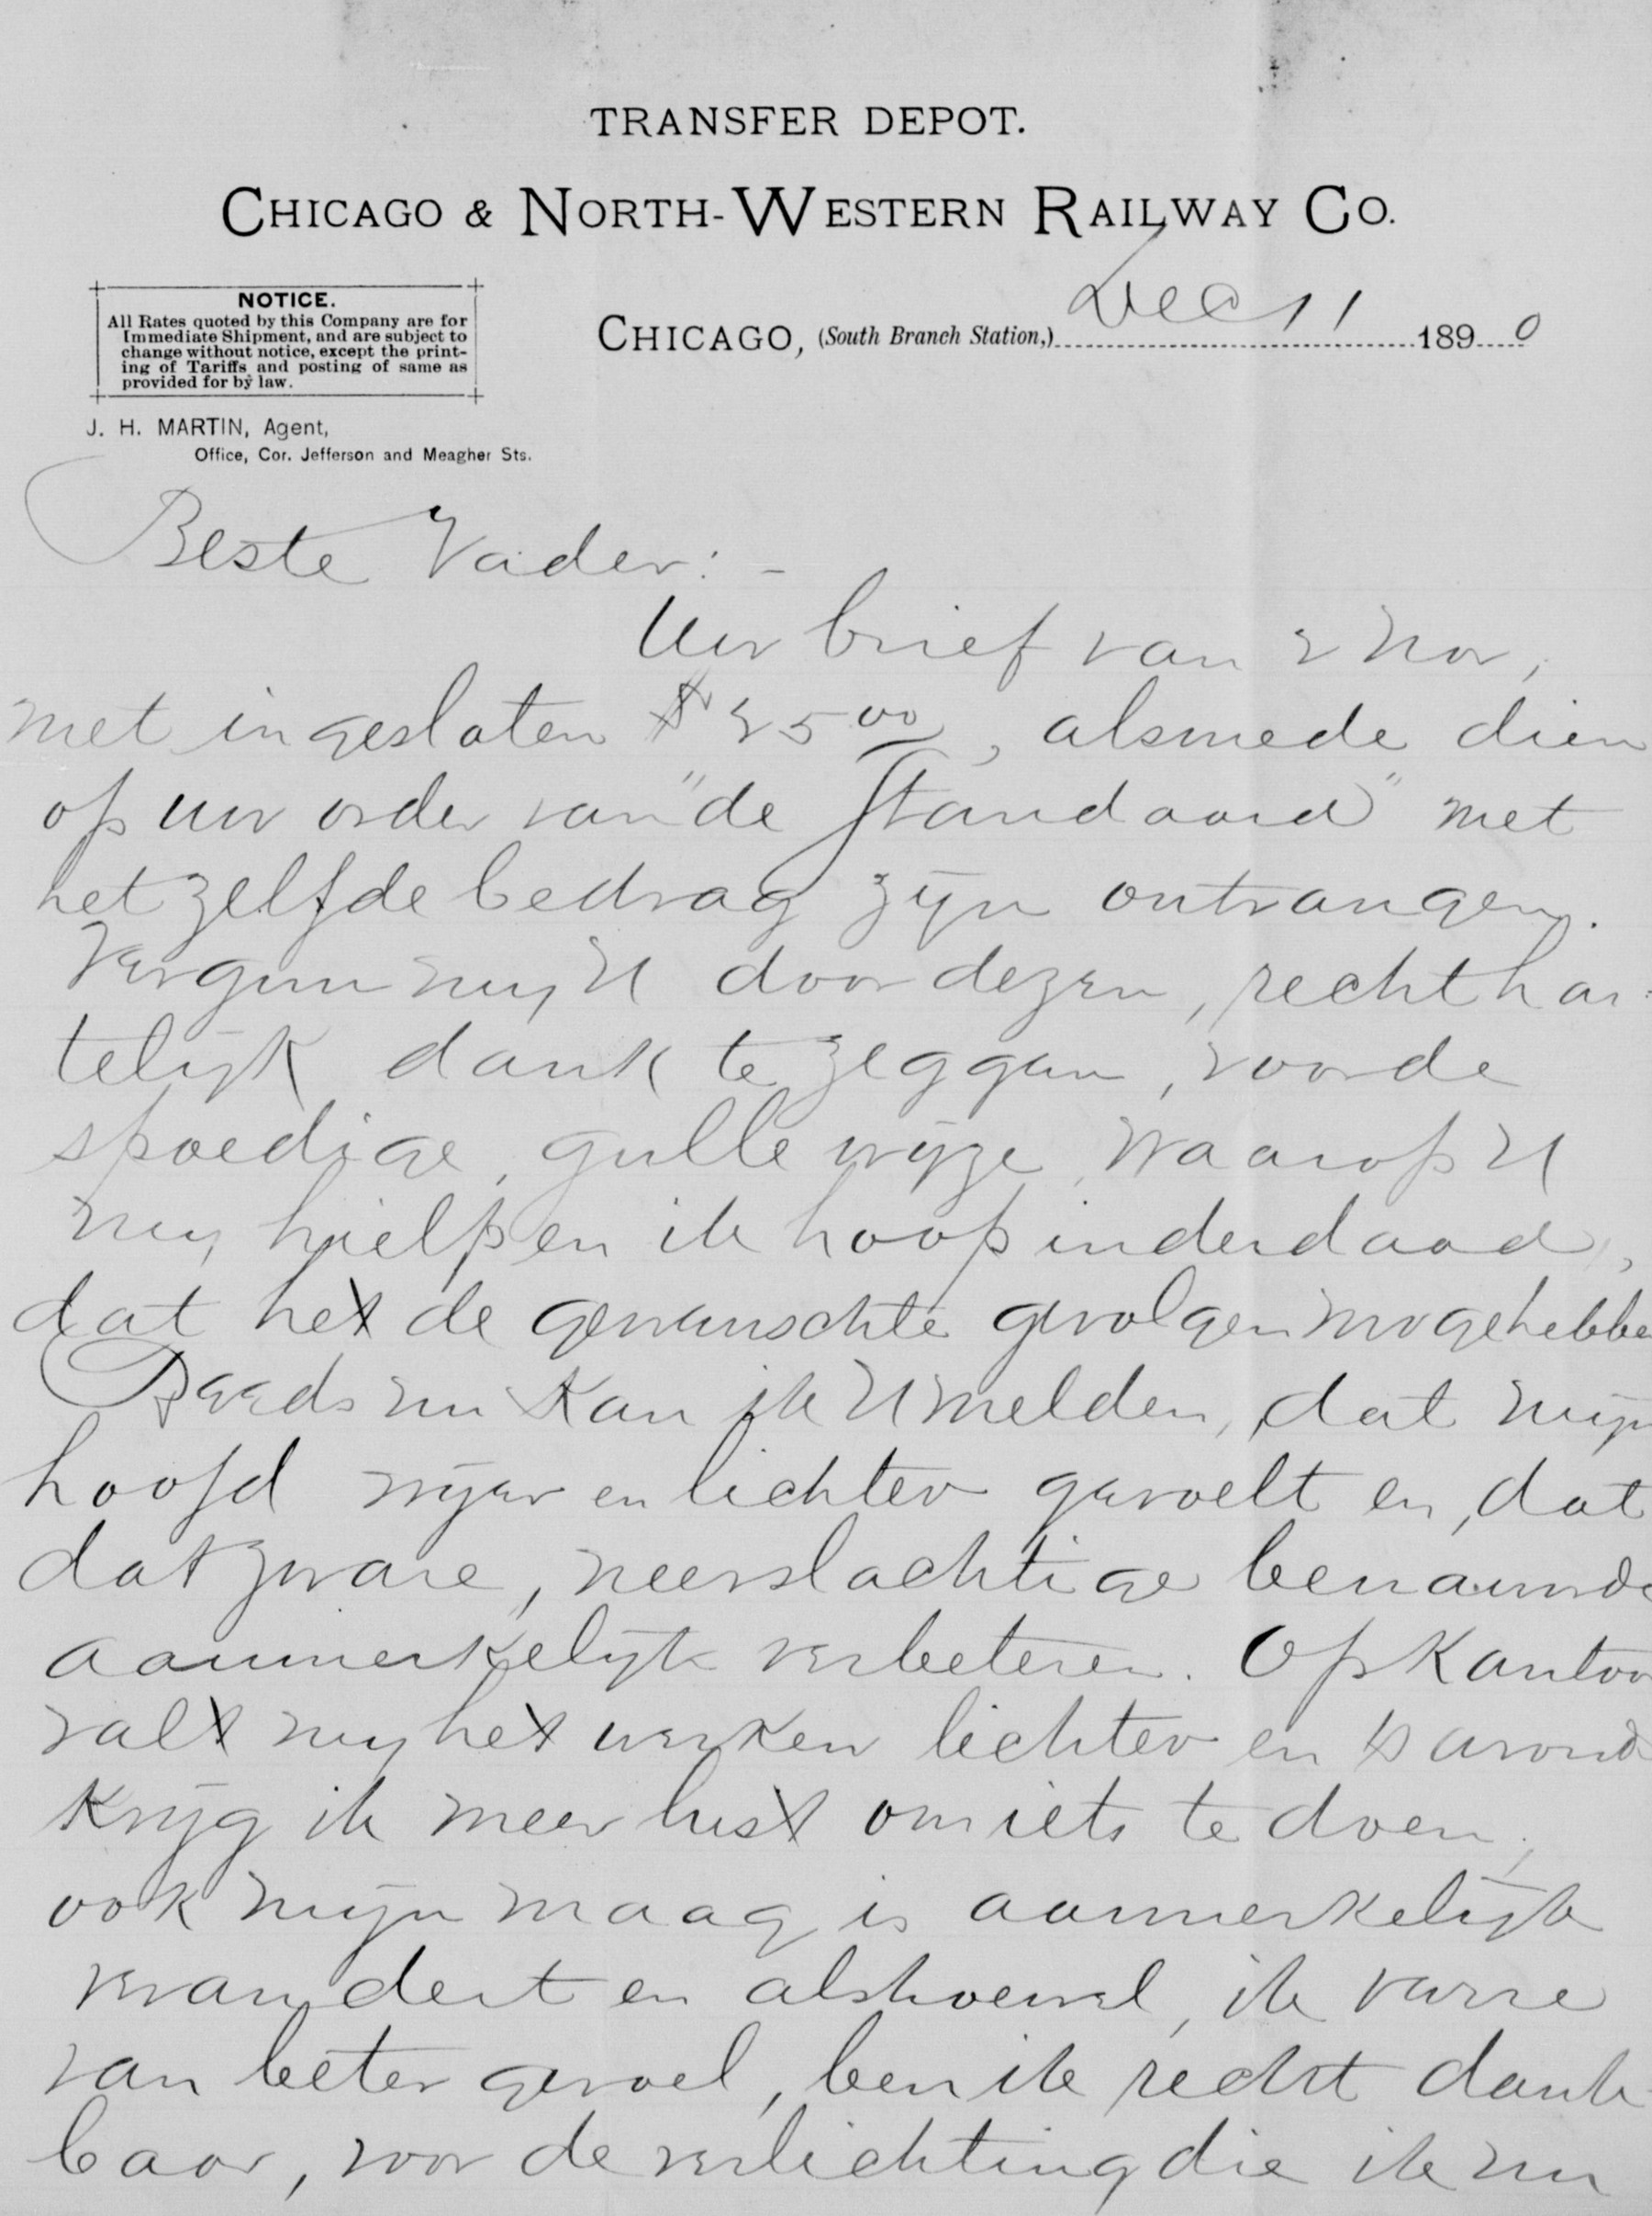 TRANSFER DEPOT.
CHICAGO & NORTH-WESTERN RAILWAY CO.
NOTICE.
All Rates quoted by this Company are for
Immediate Shipment, and are subject to
change without notice, except the print-
ing of Tariffs and posting of same as
provided for by law.
CHICAGO, (South Branch Station,) Dec 11 1890
J. H. MARTIN, Agent,
Office, Cor. Jefferson and Meagher Sts.
Beste Vader:-
Uw brief van 2 Nov,
met ingesloten $25 00, alsmede dien
op uw order van "de Standaard" met
het zelfde bedrag zijn ontvangen.
Vergun mij U door dezen, recht har=
telijk dank te zeggen, voor de
spoedige, gulle wijze, waarop U
mij hielp en ik hoop inderdaad,
dat het de gewenschte gevolgen moge hebbe
Reeds nu kan ik U melden, dat mijn
hoofd vrijer en lichter gevoelt en, dat
dat zware, neerslachtige
aanmerkelijk verbeteren. Op Kantoor
valt mij het werken lichter en 's avonds
krijg ik meer lust om iets te doen,
ook mijn maag is aanmerkelijk
verandert en alshoewel, ik verre
van beter gevoel, ben ik recht dank
baar, voor de verlichting die ik nu